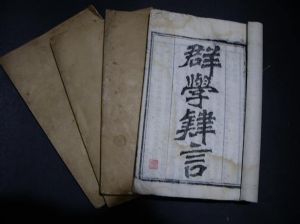 群學肄言